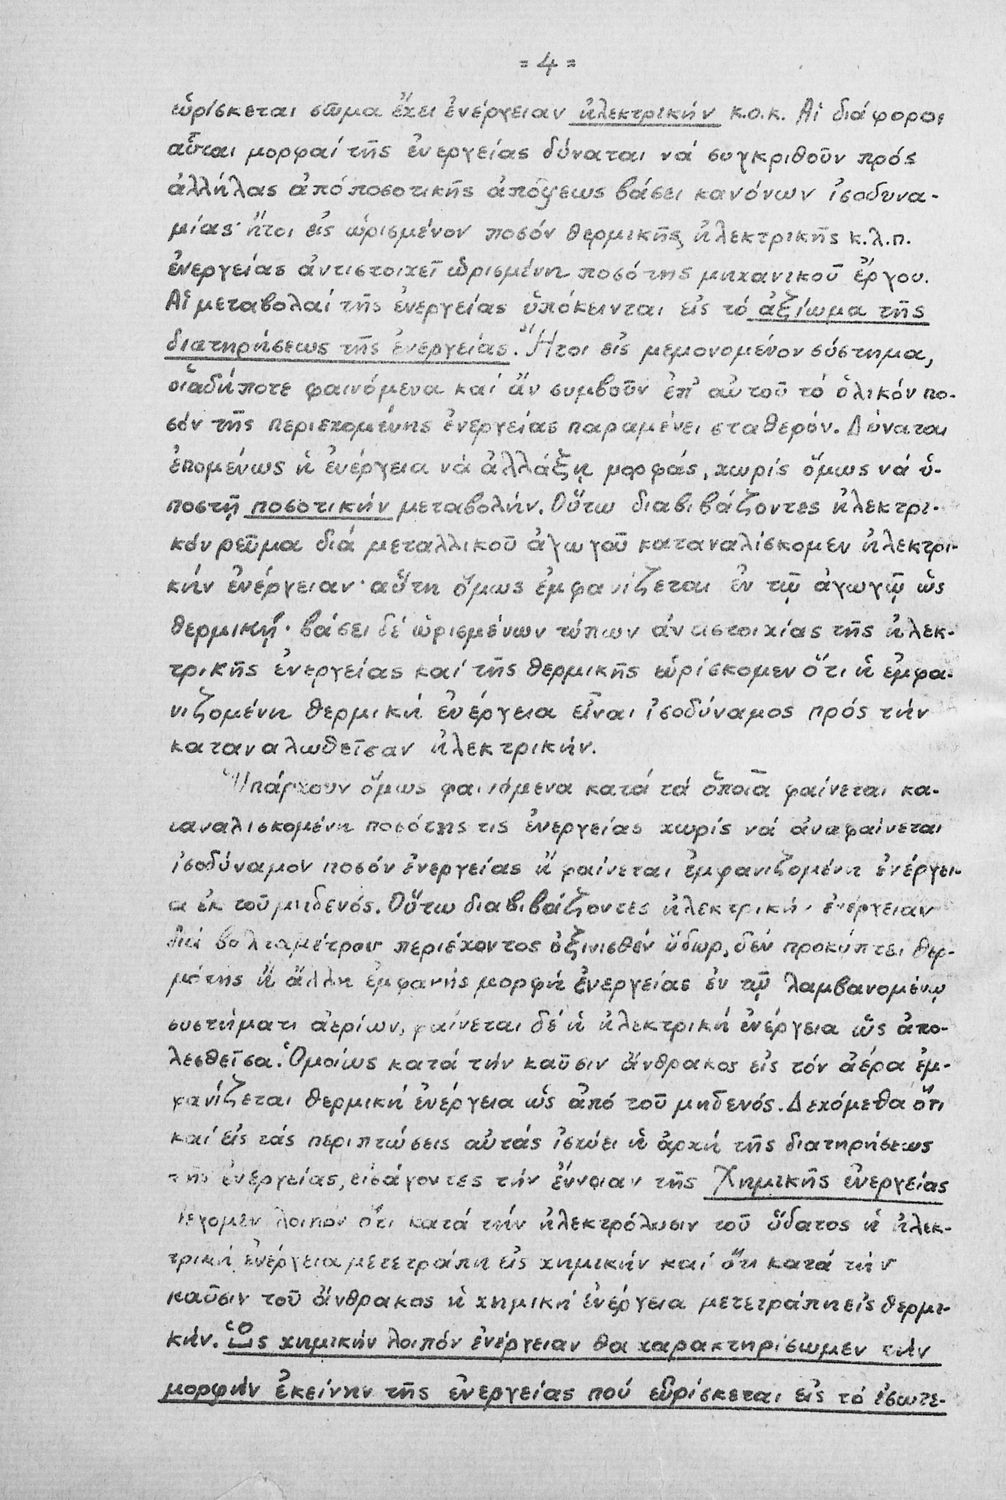 = 4 =
εὑρίσκεται σῶμα ἔχει ἐνέργειαν ἠλεκτρικήν κ.ο.κ. Αἱ διάφοροι
αὗται μορφαί τῆς ἐνεργείας δύναται νά συγκριθοῦν πρός
ἀλλήλας ἀπό ποσοτικῆς ἀπόψεως βάσει κανόνων ἰσοδυνα-
μίας· ἤτοι εἰς ὡρισμένον ποσόν θερμικῆς, ἠλεκτρικῆς κ.λ.π.
ἐνεργείας ἀντιστοιχεῖ ὡρισμένη ποσότης μηχανικοῦ ἔργου.
Αἱ μεταβολαί τῆς ἐνεργείας ὑπόκεινται εἰς τό ἀξίωμα τῆς
διατηρήσεως τῆς ἐνεργείας. Ἤτοι εἰς μεμονομένον σύστημα,
οἱαδήποτε φαινόμενα καί ἄν συμβοῦν ἐπ' αὐτοῦ τό ὁλικόν πο-
σόν τῆς περιεχομένης ἐνεργείας παραμένει σταθερόν. Δύναται
ἑπομένως ἡ ἐνέργεια νά ἀλλάξῃ μορφάς, χωρίς ὅμως νά ὑ-
ποστῇ ποσοτικήν μεταβολήν. Οὕτω διαβιβάζοντες ἠλεκτρι-
κόν ρεῦμα διά μεταλλικοῦ ἀγωγοῦ καταναλίσκομεν ἠλεκτρι-
κήν ἐνέργειαν· αὕτη ὅμως ἐμφανίζεται ἐν τῷ ἀγωγῷ ὡς
θερμική· βάσει δέ ὡρισμένων τύπων ἀντιστοιχίας τῆς ἠλεκ-
τρικῆς ἐνεργείας καί τῆς θερμικῆς εὑρίσκομεν ὅτι ἡ ἐμφα-
νιζομένη θερμική ἐνέργεια εἶναι ἰσοδύναμος πρός τήν
καταναλωθεῖσαν ἠλεκτρικήν.
Ὑπάρχουν ὅμως φαινόμενα κατά τά ὁποῖα φαίνεται κα-
ταναλισκομένη ποσότης τις ἐνεργείας χωρίς νά ἀναφαίνεται
ἰσοδύναμον ποσόν ἐνεργείας ἤ φαίνεται ἐμφανιζομένη ἐνέργει-
α ἐκ τοῦ μηδενός. Οὕτω διαβιβάζοντες ἠλεκτρικήν ἐνέργειαν
διά βολταμέτρου περιέχοντος ὀξινισθέν ὕδωρ, δέν προκύπτει θερ-
μότης ἤ ἄλλη ἐμφανής μορφή ἐνεργείας ἐν τῷ λαμβανομένῳ
συστήματι ἀερίων, φαίνεται δέ ἡ ἠλεκτρική ἐνέργεια ὡς ἀπο-
λεσθεῖσα. Ὁμοίως κατά τήν καῦσιν ἄνθρακος εἰς τόν ἀέρα ἐμ-
φανίζεται θερμική ἐνέργεια ὡς ἀπό τοῦ μηδενός. Δεχόμεθα ὅτι
καί εἰς τάς περιπτώσεις αὐτάς ἰσχύει ἡ ἀρχή τῆς διατηρήσεως
τῆς ἐνεργείας, εἰσάγοντες τήν ἔννοιαν τῆς Χημικῆς ἐνεργείας
λέγομεν λοιπόν ὅτι κατά τήν ἠλεκτρόλυσιν τοῦ ὕδατος ἡ ἠλεκ-
τρική ἐνέργεια μετετράπη εἰς χημικήν καί ὅτι κατά τήν
καῦσιν τοῦ ἄνθρακος ἡ χημική ἐνέργεια μετετράπη εἰς θερμι-
κήν. Ὡς χημικήν λοιπόν ἐνέργειαν θα χαρακτηρίσωμεν τήν
μορφήν ἐκείνην τῆς ἐνεργείας πού εὑρίσκεται εἰς τό ἐσωτε-